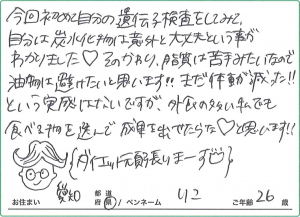 今回初めて自分の遺伝子検査をしてみて、
自分は炭水化物は意外と大丈夫という事が
わかりました♡ そのかわり、脂質は苦手みたいなので
油物は避けたいと思います!! まだ体重が減った!!
という実感はないですが、外食の多い私でも
食べる物を選んで成果を出せたらな♡と思います!!
{ダイエット頑張りまーす♡}
お住まい 愛知 都 道 府 県 / ペンネーム りこ ご年齢 26 歳